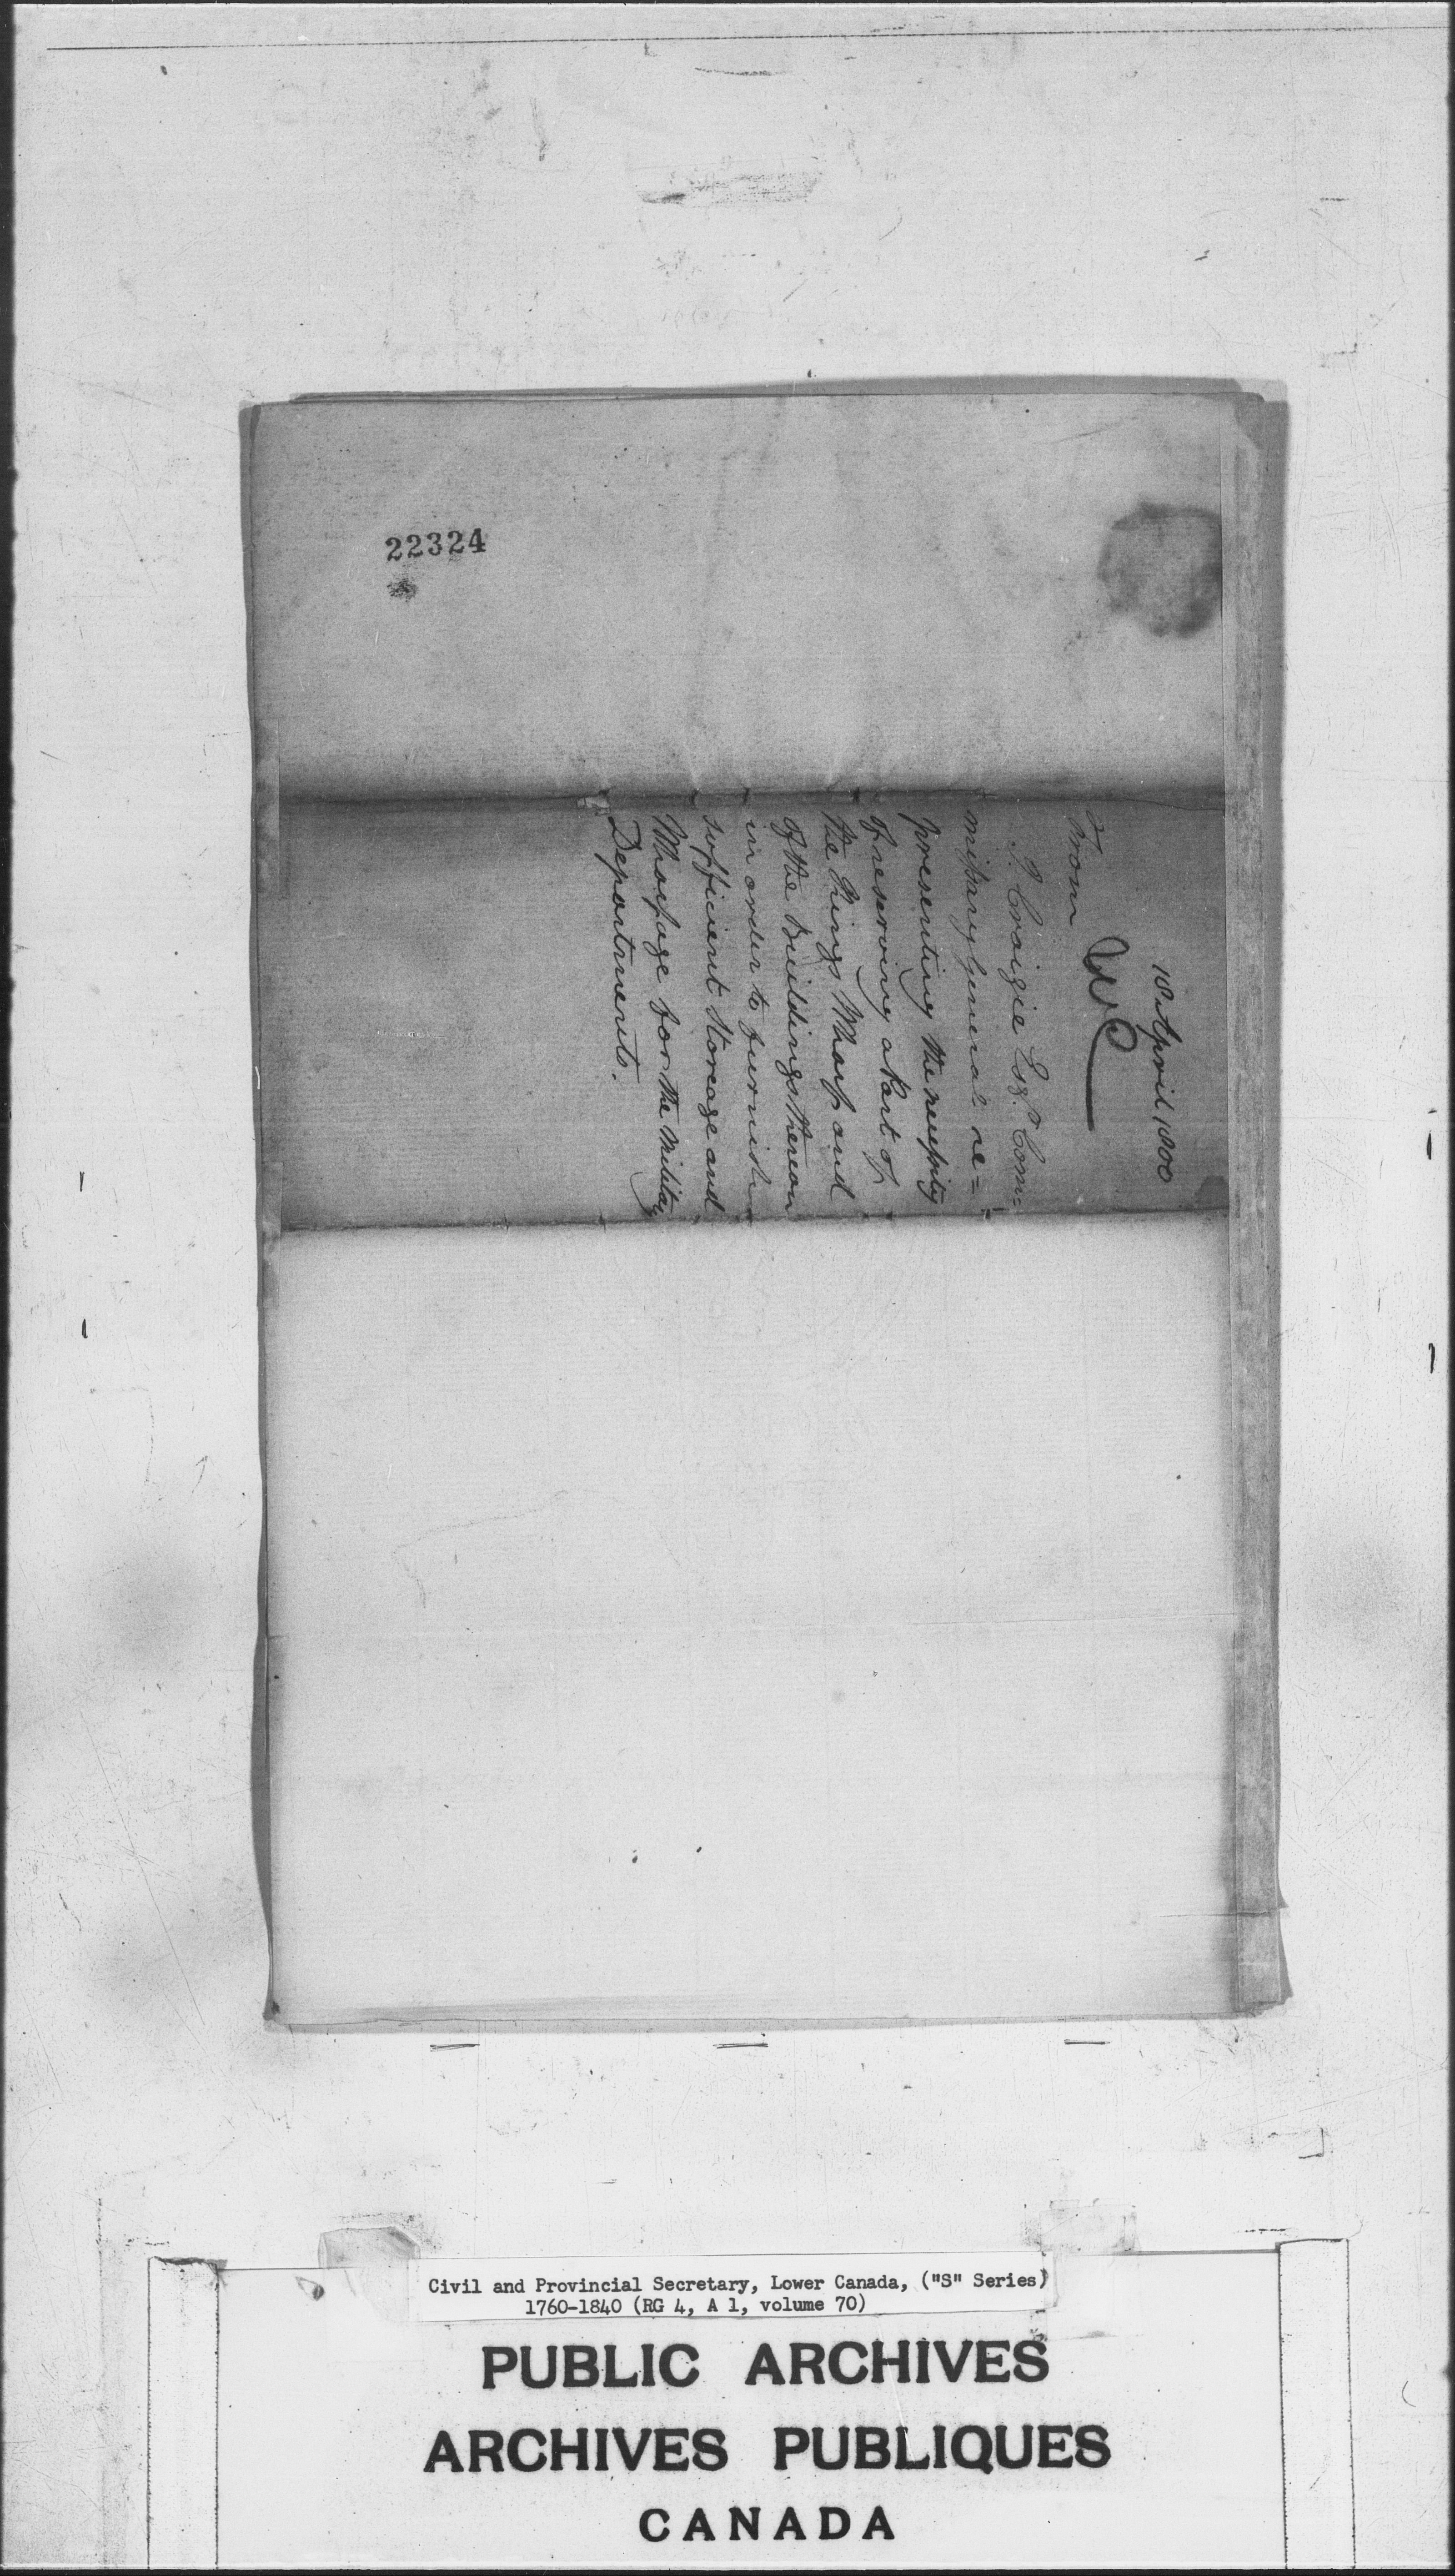 22324
10 April 1800
From
J. Craigie Esqr. Com=
missary General re=
presenting the necessity
of reserving a Part of
the Kings Wharf and
of the Buildings thereon
in order to furnish
sufficient Storeage and
Wharfage for the Military
Departments.
Civil and Provincial Secretary, Lower Canada, ("S" Series)
1760-1840 (RG 4, A 1, volume 70)
PUBLIC ARCHIVES
ARCHIVES PUBLIQUES
CANADA